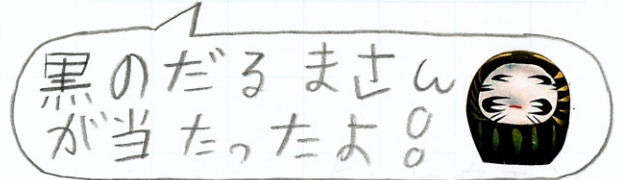 黒のだるまさん
が当たったよ!